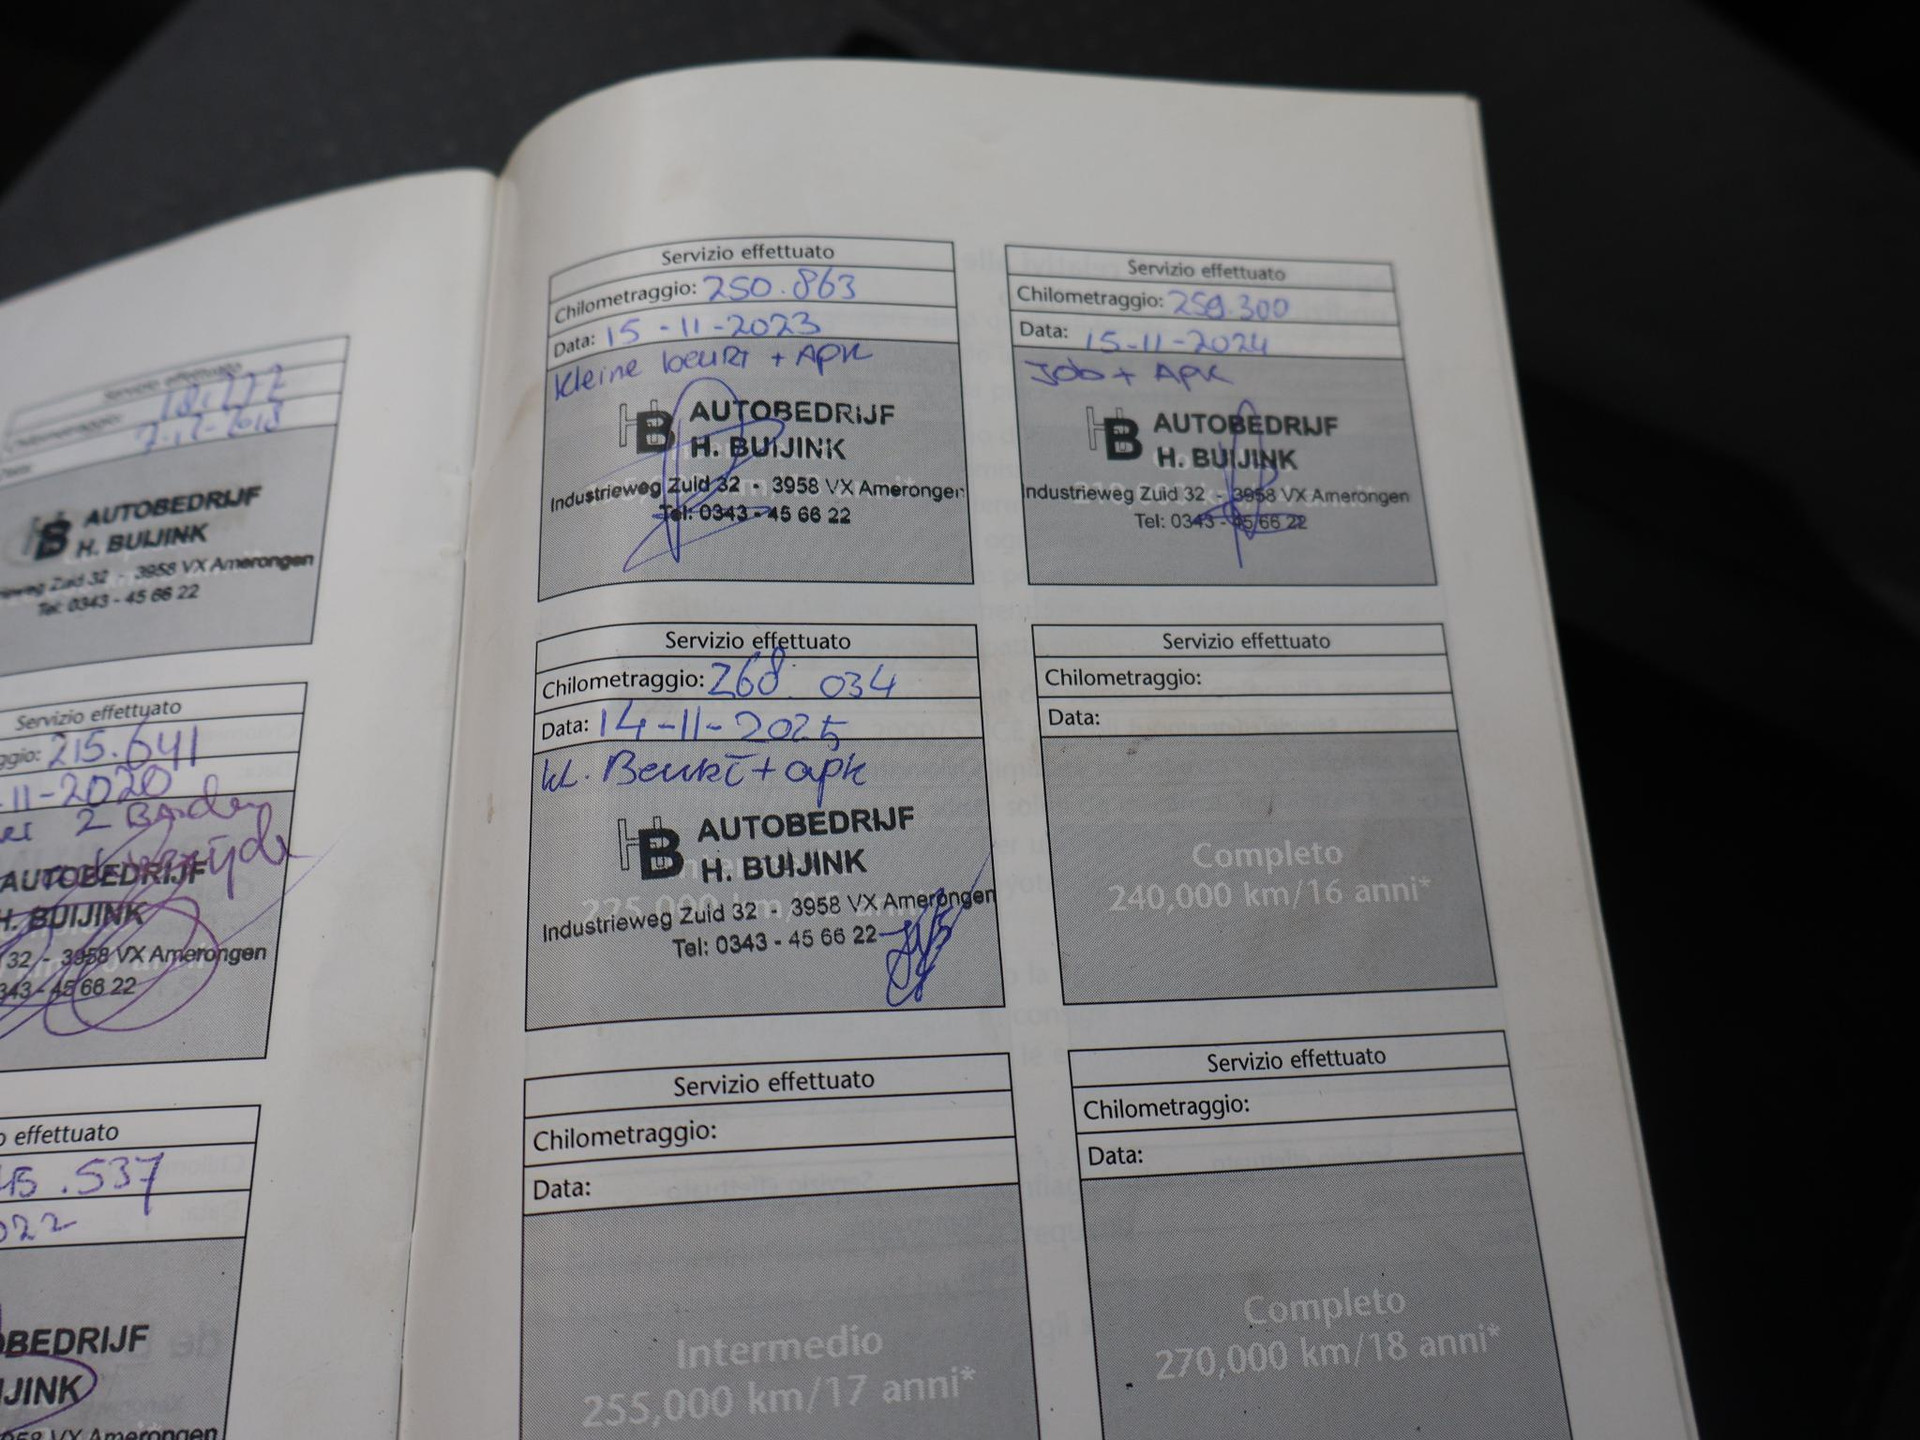 AUTOBEDRIJF
H. BUIJINK
Zuid 32 - 3958 VX Amerongen
Tel: 0343 - 45 66 22
Servizio effettuato
215.641
-11-2020
2 Banden
AUTOBEDRIJF
H. BUIJINK
32 - 3958 VX Amerongen
343 - 45 66 22
effettuato
45.537
022
BEDRIJF
JINK
3958 VX Amerongen
Servizio effettuato
Chilometraggio: 250.863
Data: 15-11-2023
Kleine beurt + APK
HB AUTOBEDRIJF
H. BUIJINK
Industrieweg Zuid 32 - 3958 VX Amerongen
Tel: 0343 - 45 66 22
Servizio effettuato
Chilometraggio: 259.300
Data: 15-11-2024
+ APK
HB AUTOBEDRIJF
H. BUIJINK
Industrieweg Zuid 32 - 3958 VX Amerongen
Tel: 0343 - 45 66 22
Servizio effettuato
Chilometraggio: 268.034
Data: 14-11-2025
kl. Beurt + apk
HB AUTOBEDRIJF
H. BUIJINK
Industrieweg Zuid 32 - 3958 VX Amerongen
Tel: 0343 - 45 66 22
Servizio effettuato
Chilometraggio:
Data:
Completo
240,000 km/16 anni*
Servizio effettuato
Chilometraggio:
Data:
Intermedio
255,000 km/17 anni*
Servizio effettuato
Chilometraggio:
Data:
Completo
270,000 km/18 anni*